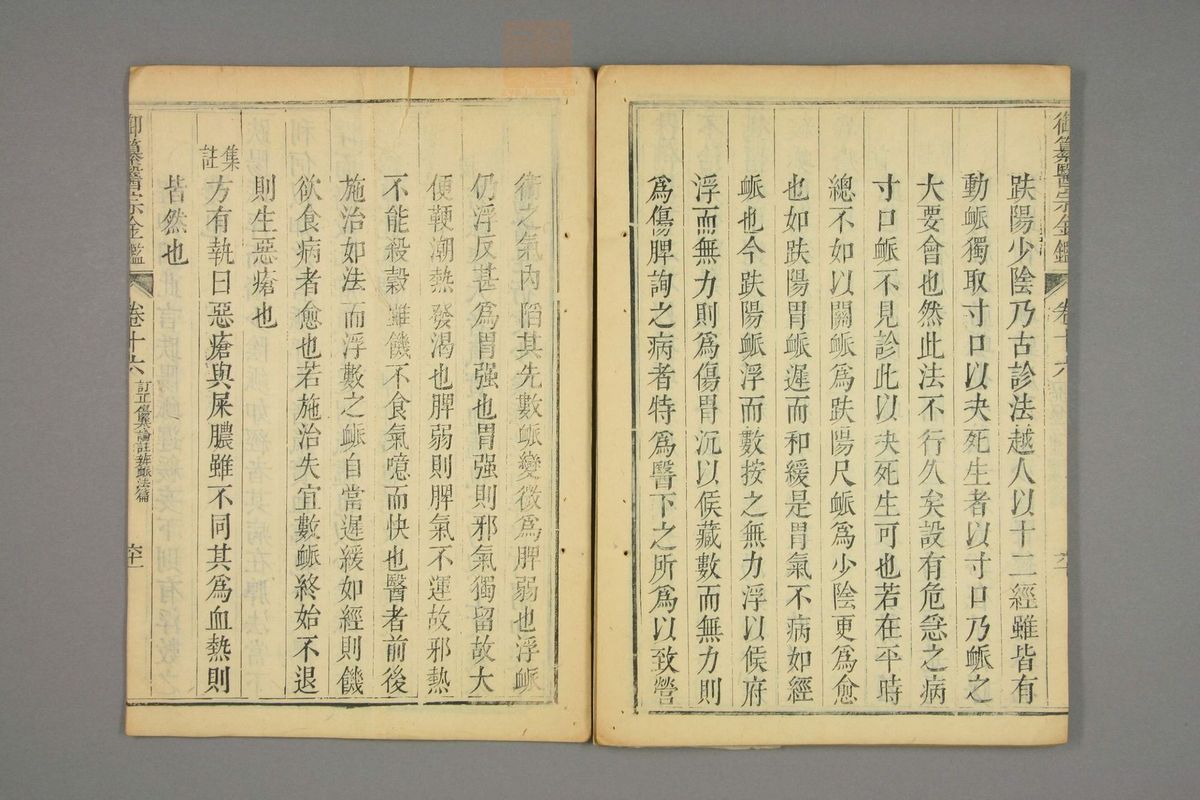 御纂醫宗金鑑 卷十六
趺陽少陰乃古診法越人以十二經雖皆有
動脈獨取寸口以决死生者以寸口乃脈之
大要會也然此法不行久矣設有危急之病
寸口脈不見診此以决死生可也若在平時
總不如以關脈爲趺陽尺脈爲少陰更爲愈
也如趺陽胃脈遲而和緩是胃氣不病如經
脈也今趺陽脈浮而數按之無力浮以候府
浮而無力則爲傷胃沉以候藏數而無力則
爲傷脾詢之病者特爲醫下之所爲以致營
衞之氣內陷其先數脈變微爲脾弱也浮脈
仍浮反甚爲胃强也胃强則邪氣獨留故大
便鞕潮熱發渴也脾弱則脾氣不運故邪熱
不能殺穀雖饑不食氣噫而快也醫者前後
施治如法而浮數之脈自當遲緩如經則饑
欲食病者愈也若施治失宜數脈終始不退
則生惡瘡也
集註
方有執曰惡瘡與屎膿雖不同其爲血熱則
皆然也
御纂醫宗金鑑 卷十六 訂正傷寒論註辨脈法篇